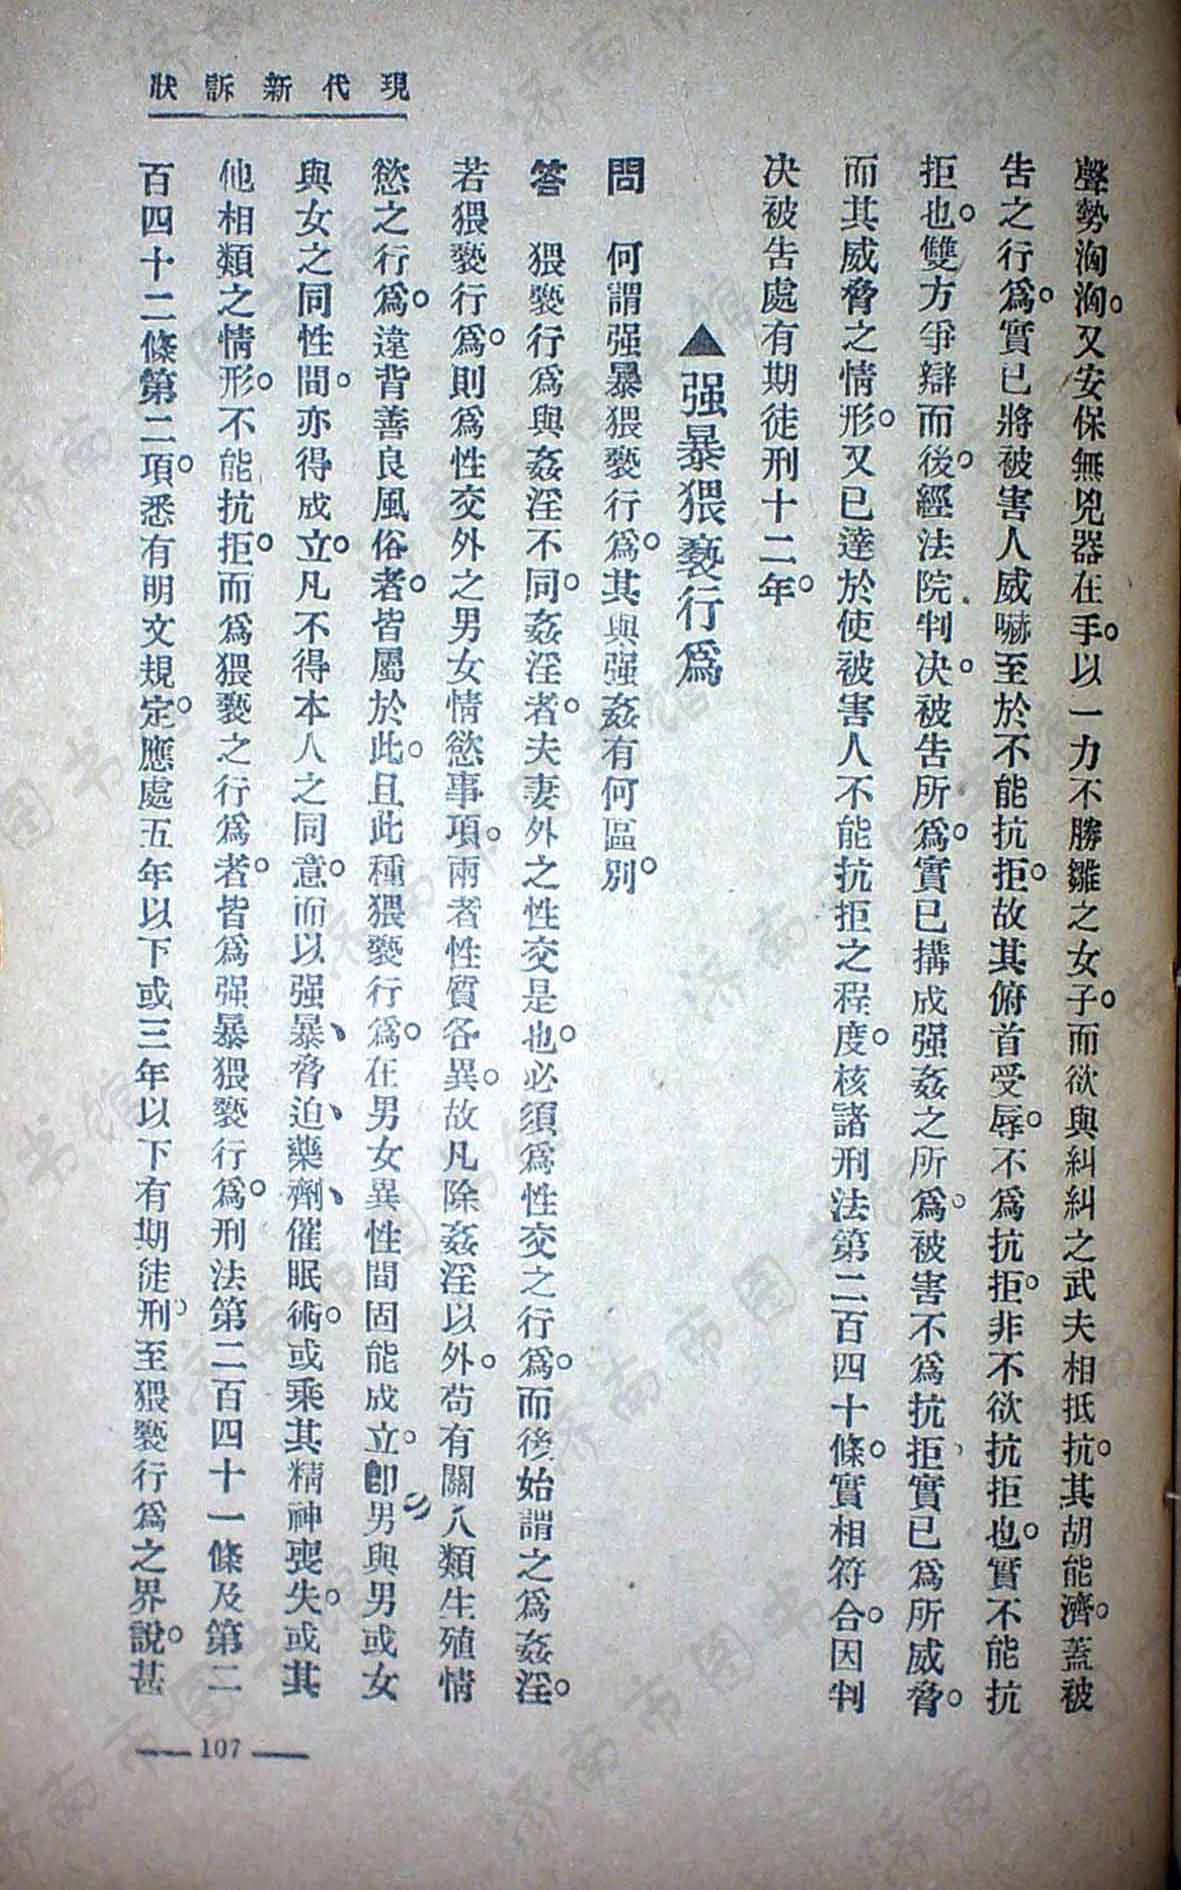 現代新訴狀
聲勢洶洶。又安保無兇器在手。以一力不勝雛之女子。而欲與糾糾之武夫相抵抗。其胡能濟。蓋被
告之行爲。實已將被害人威嚇至於不能抗拒。故其俯首受辱。不爲抗拒。非不欲抗拒也。實不能抗
拒也。雙方爭辯而後。經法院判决。被告所爲。實已搆成强姦之所爲。被害不爲抗拒、實已爲所威脅。
而其威脅之情形。又已達於使被害人不能抗拒之程度。核諸刑法第二百四十條。實相符合。因判
决被告處有期徒刑十二年。
▲强暴猥褻行爲
問　何謂强暴猥褻行爲。其與强姦有何區別。
答　猥褻行爲與姦淫不同。姦淫者。夫妻外之性交是也。必須爲性交之行爲。而後始謂之爲姦淫。
若猥褻行爲。則爲性交外之男女情慾事項。兩者性質各異。故凡除姦淫以外。苟有關人類生殖情
慾之行爲。違背善良風俗者。皆屬於此。且此種猥褻行爲。在男女異性間固能成立。卽男與男或女
與女之同性間。亦得成立。凡不得本人之同意。而以强暴、脅迫、藥劑、催眠術。或乘其精神喪失。或其
他相類之情形。不能抗拒。而爲猥褻之行爲者。皆爲强暴猥褻行爲。刑法第二百四十一條及第二
百四十二條第二項。悉有明文規定。應處五年以下或三年以下有期徒刑、至猥褻行爲之界說。甚
107
济南市图书馆